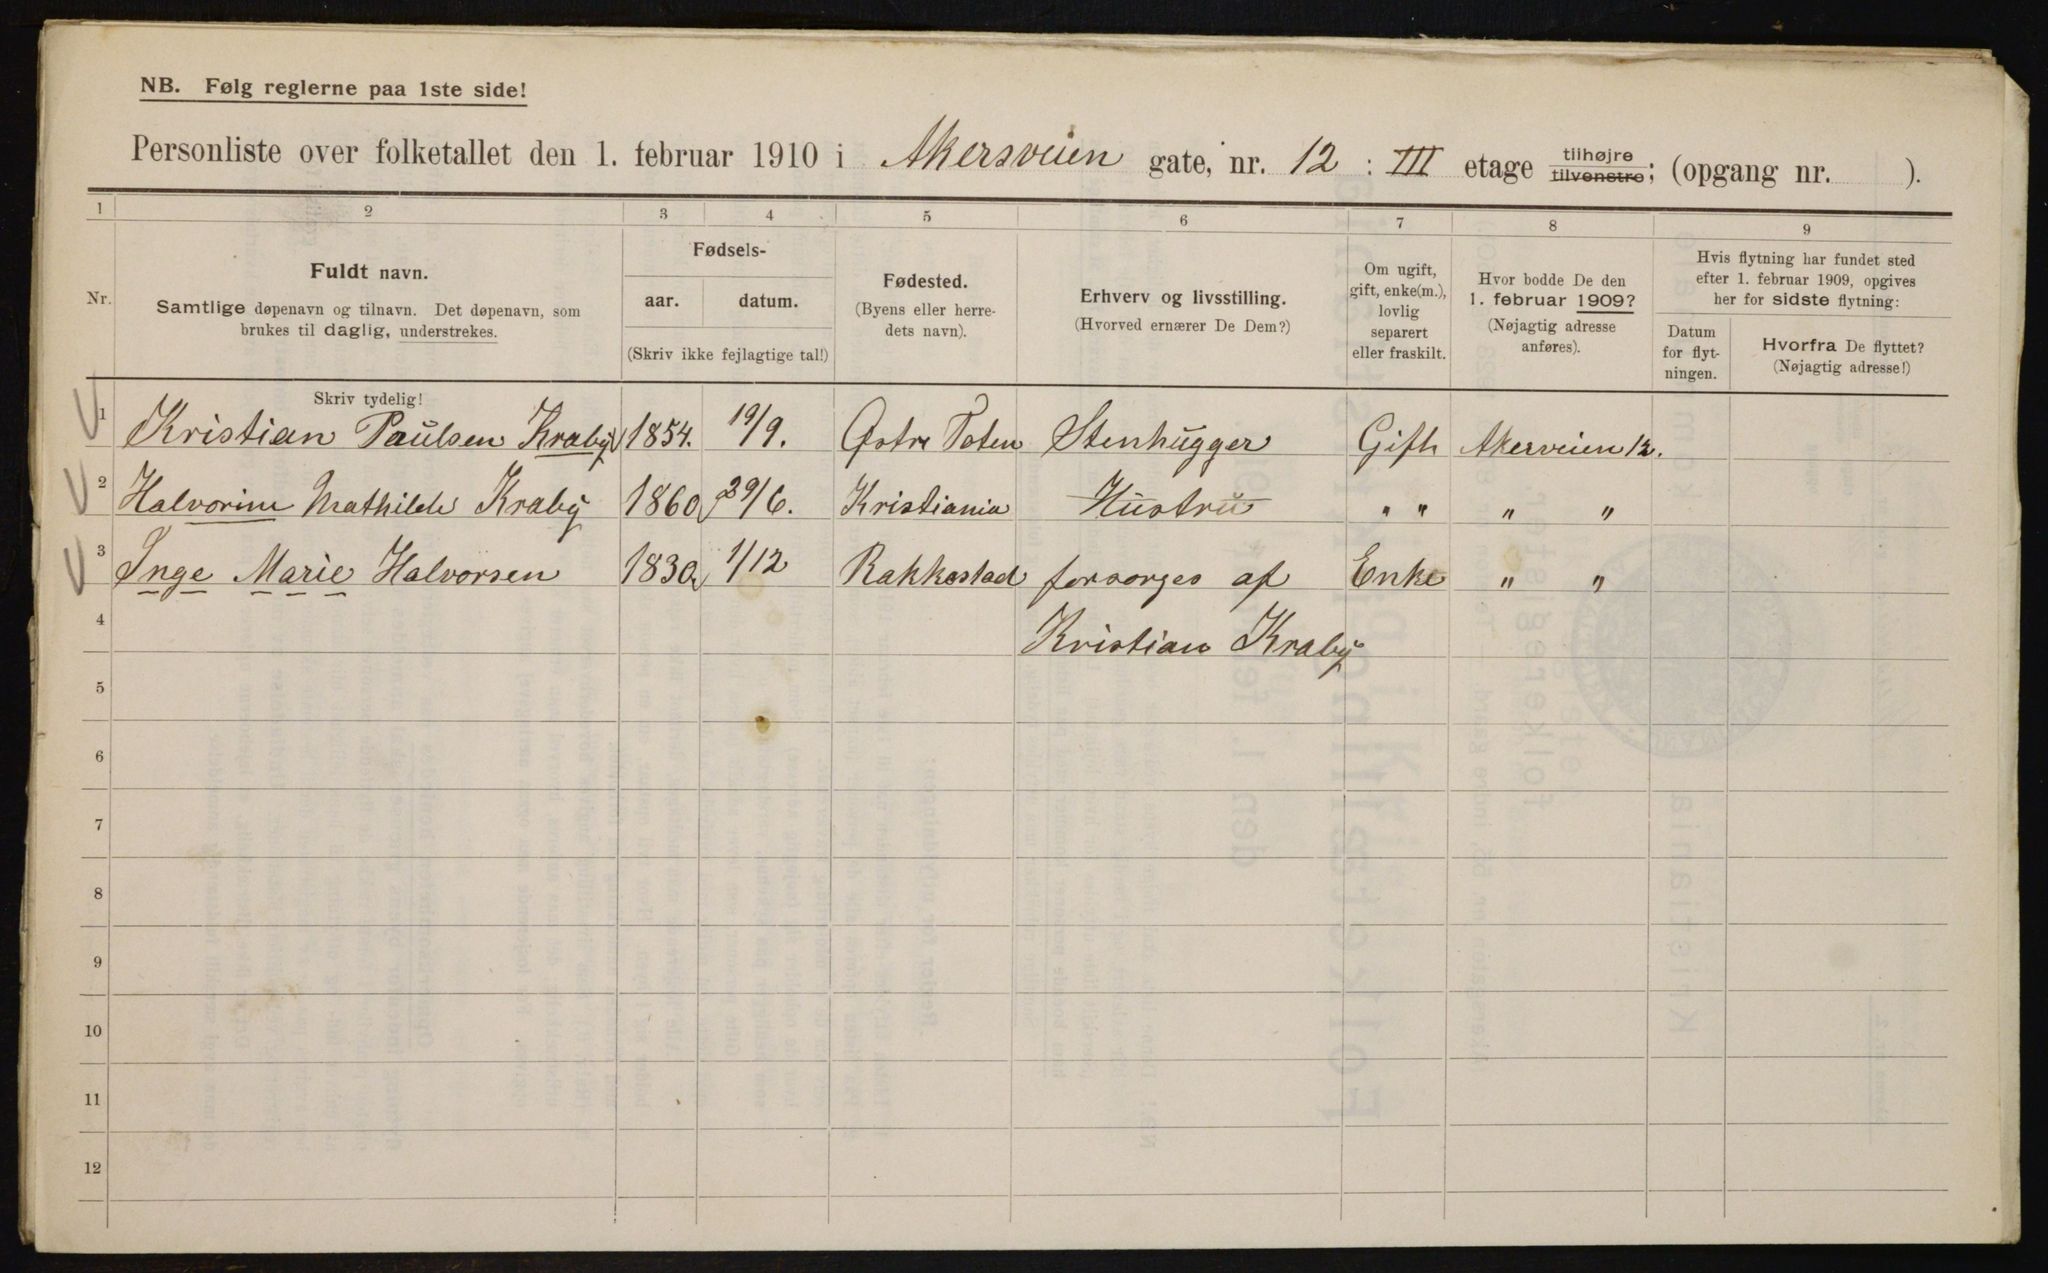 NB. Følg reglerne paa 1ste side!
Personliste over folketallet den 1. februar 1910 i Akersveien gate, nr. 12 : III etage tilhøjre tilvenstre; (opgang nr. ).
1 2 3 4 5 6 7 8 9
Nr.
Fuldt navn.
Samtlige døpenavn og tilnavn. Det døpenavn, som
brukes til daglig, understrekes.
Fødsels-
aar. datum.
(Skriv ikke fejlagtige tal!)
Fødested.
(Byens eller herre-
dets navn).
Erhverv og livsstilling.
(Hvorved ernærer De Dem?)
Om ugift,
gift, enke(m.),
lovlig
separert
eller fraskilt.
Hvor bodde De den
1. februar 1909?
(Nøjagtig adresse
anføres).
Hvis flytning har fundet sted
efter 1. februar 1909, opgives
her for sidste flytning:
Datum
for flyt-
ningen.
Hvorfra De flyttet?
(Nøjagtig adresse!)
Skriv tydelig!
1 Kristian Paulsen Kraby 1854. 19/9. Østre Toten Stenhugger Gift Akersveien 12.
2 Halvorine Mathilde Kraby 1860 29/6. Kristiania Hustru " " " "
3 Inge Marie Halvorsen 1830 1/12 Rakkestad forsørges af Enke " "
4 Kristian Kraby
5
6
7
8
9
10
11
12